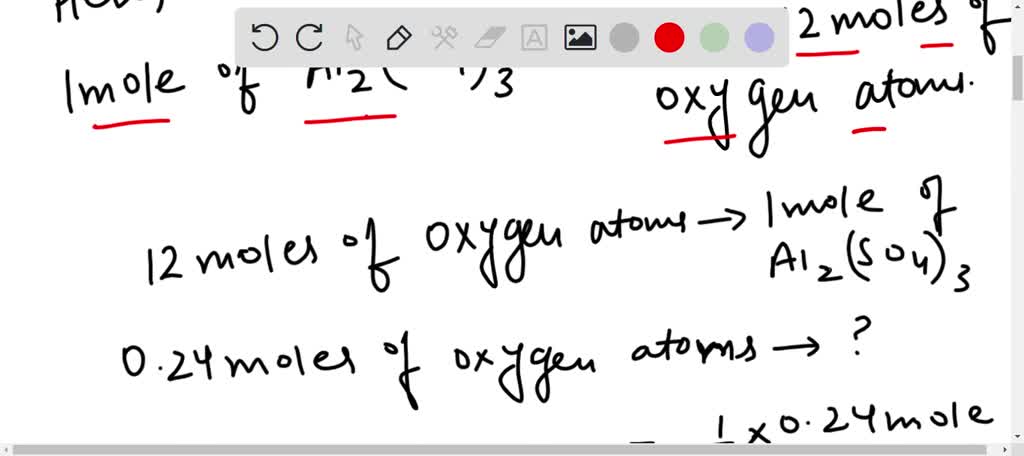 2 moles of
1 mole of Al2( )3
oxygen atoms.
12 moles of oxygen atoms → 1 mole of
Al2(SO4)3
0.24 moles of oxygen atoms → ?
1 × 0.24 mole